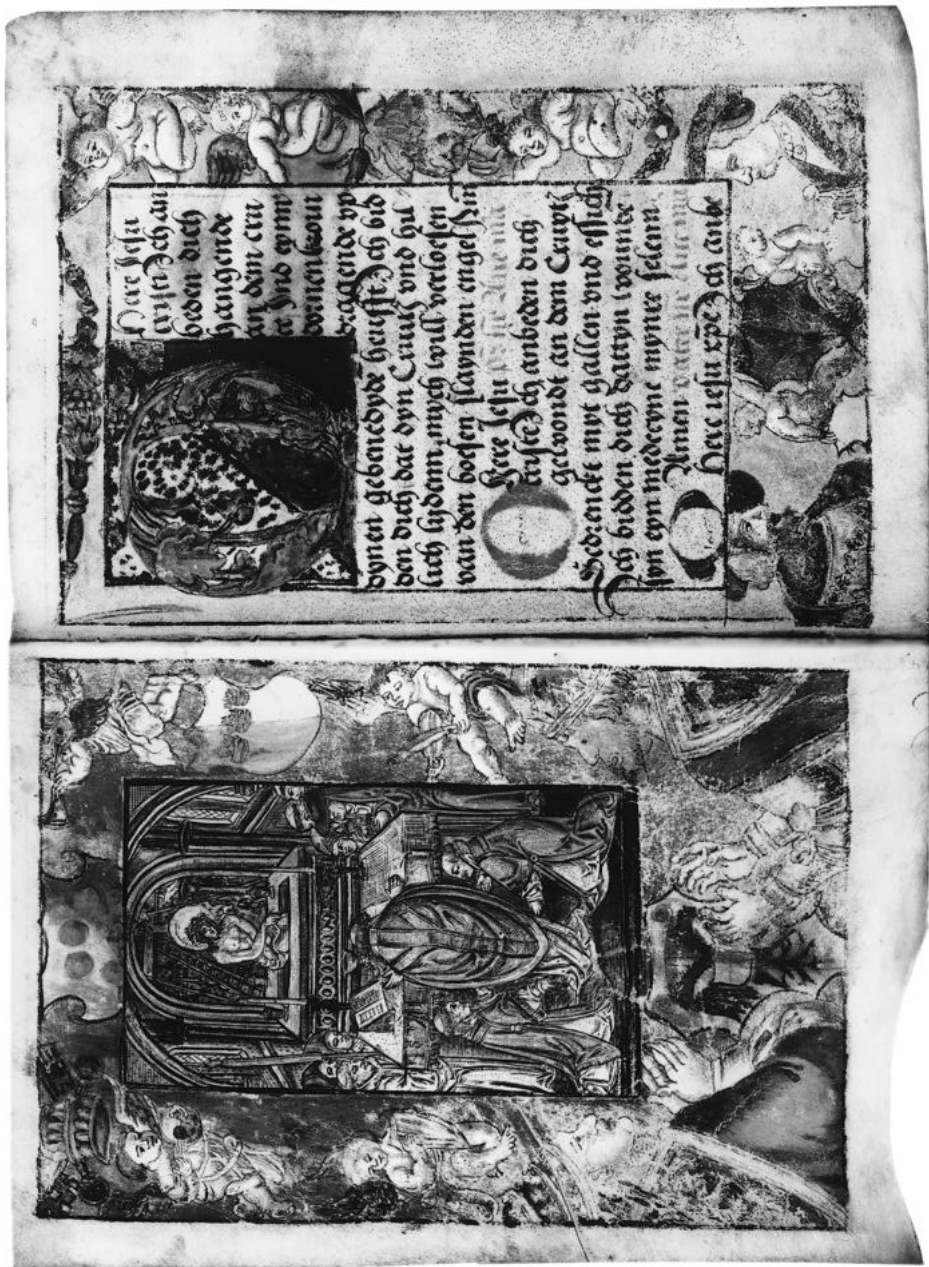 Here Jesu
cristi Ich an
beden dich
hangende
an dem cru
ce Ind eynn
dornen kroin
dragende vp
dynen gebenedyde heufft Ich bid
den dich dat dyn Cruitz vnd hil
lich lydenn mych will verloesen
van den boesen slaynden engel
Here Jesu
criste Ich anbeden dich
gewondt an dem Cruytz
Gedrenckt myt gallen vnd essich
Ich bidden dich dattyn wounde
syn eyn medecyne mynre selenn
Amen
Here iesu xpe Ich anbe